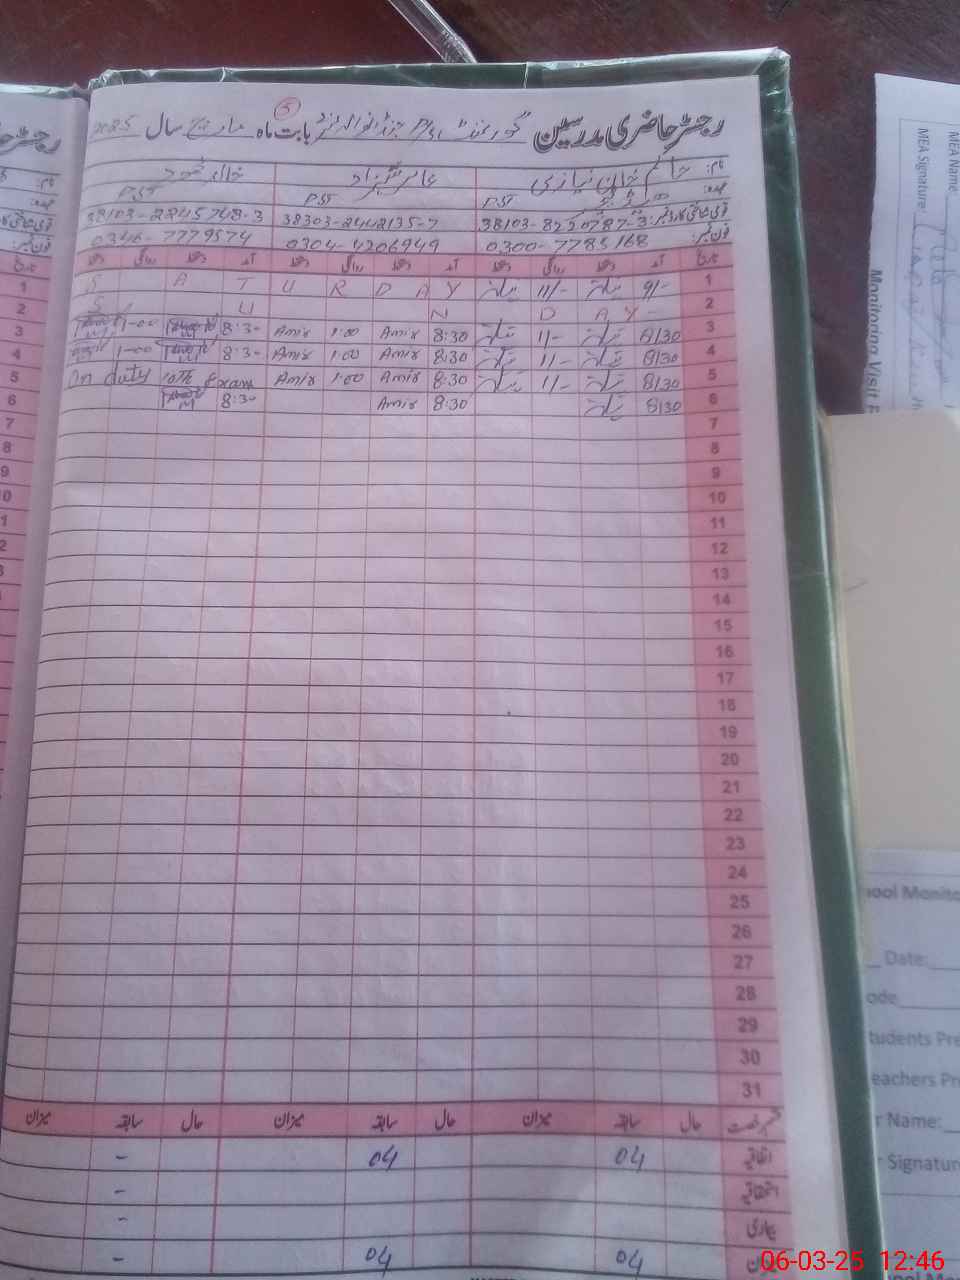 رجسٹر حاضری مدرسین گورنمنٹ P/S بابت ماہ مارچ سال 2025
5
نام: حاکم خان نیازی عامر شہزاد خالد محمود
عہدہ: PST PST
قومی شناختی کارڈ نمبر: 38103-8250787-3 38303-2442135-7 38103-2245748-3
فون نمبر: 0300-7785168 0304-4206949 0346-7779574
تاریخ آمد دستخط روانگی دستخط آمد دستخط روانگی دستخط آمد دستخط روانگی دستخط
1 S A T U R D A Y 11/- 9/-
2 S U N D A Y -
3 1-00 8:30 Amir 1:00 Amir 8:30 11/- 8/30
4 1-00 8:30 Amir 1:00 Amir 8:30 11/- 8/30
5 On duty 10th Exam Amir 1:00 Amir 8:30 11/- 8/30
6 8:30 Amir 8:30 8/30
7
8
9
10
11
12
13
14
15
16
17
18
19
20
21
22
23
24
25
26
27
28
29
30
31
قسم رخصت حال سابقہ میزان حال سابقہ میزان حال سابقہ میزان
اتفاقیہ 04 04 -
استحقاقیہ -
بیماری -
میزان 04 04 -
رجسٹر حا
MEA Name:
MEA Signature:
Monitoring Visit
ool Monito
Date:
ode
tudents Pre
eachers Pr
r Name:
r Signatur
06-03-25 12:46